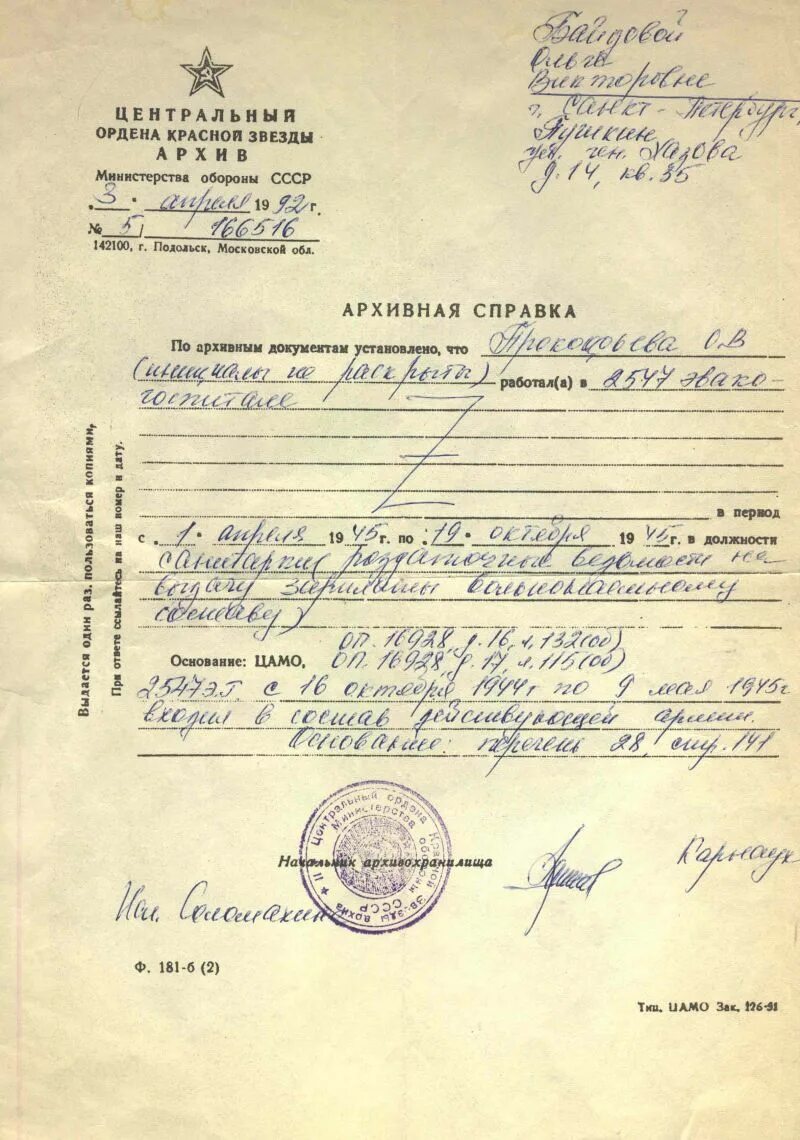 ЦЕНТРАЛЬНЫЙ
ОРДЕНА КРАСНОЙ ЗВЕЗДЫ
АРХИВ
Министерства обороны СССР
„3“ апреля 1992 г.
№ 5/ 166516
142100, г. Подольск, Московской обл.
Байдовой
Ольге
Викторовне
г. Санкт-Петербург,
Пушкин
ул. ген. Хазова
д. 14, кв. 35
АРХИВНАЯ СПРАВКА
По архивным документам установлено, что Прокофьева О.В
(инициалы не раскрыты) работал(а) в 2547 эвако-
госпитале
в период
с „1“ апреля 1945 г. по „19“ октября 1945 г. в должности
санитарки раздаточные ведомости на
выдачу зарплаты вольнонаемному
составу)
оп. 16928, д. 16, л. 132(об)
Основание: ЦАМО, оп. 16928, д. 17, л. 115(об)
2547 ЭГ с 16 октября 1944г по 9 мая 1945г
входил в состав действующей армии.
Основание: перечень 28, стр. 141
Выдается один раз, пользоваться копиями,
При ответе ссылайтесь на наш номер и дату.
Центральный ордена Красной Звезды архив
Министерства обороны СССР
II
Начальник архивохранилища
Карнаук
Исп. Соломахин
Ф. 181-б (2)
Тип. ЦАМО Зак. 126-91